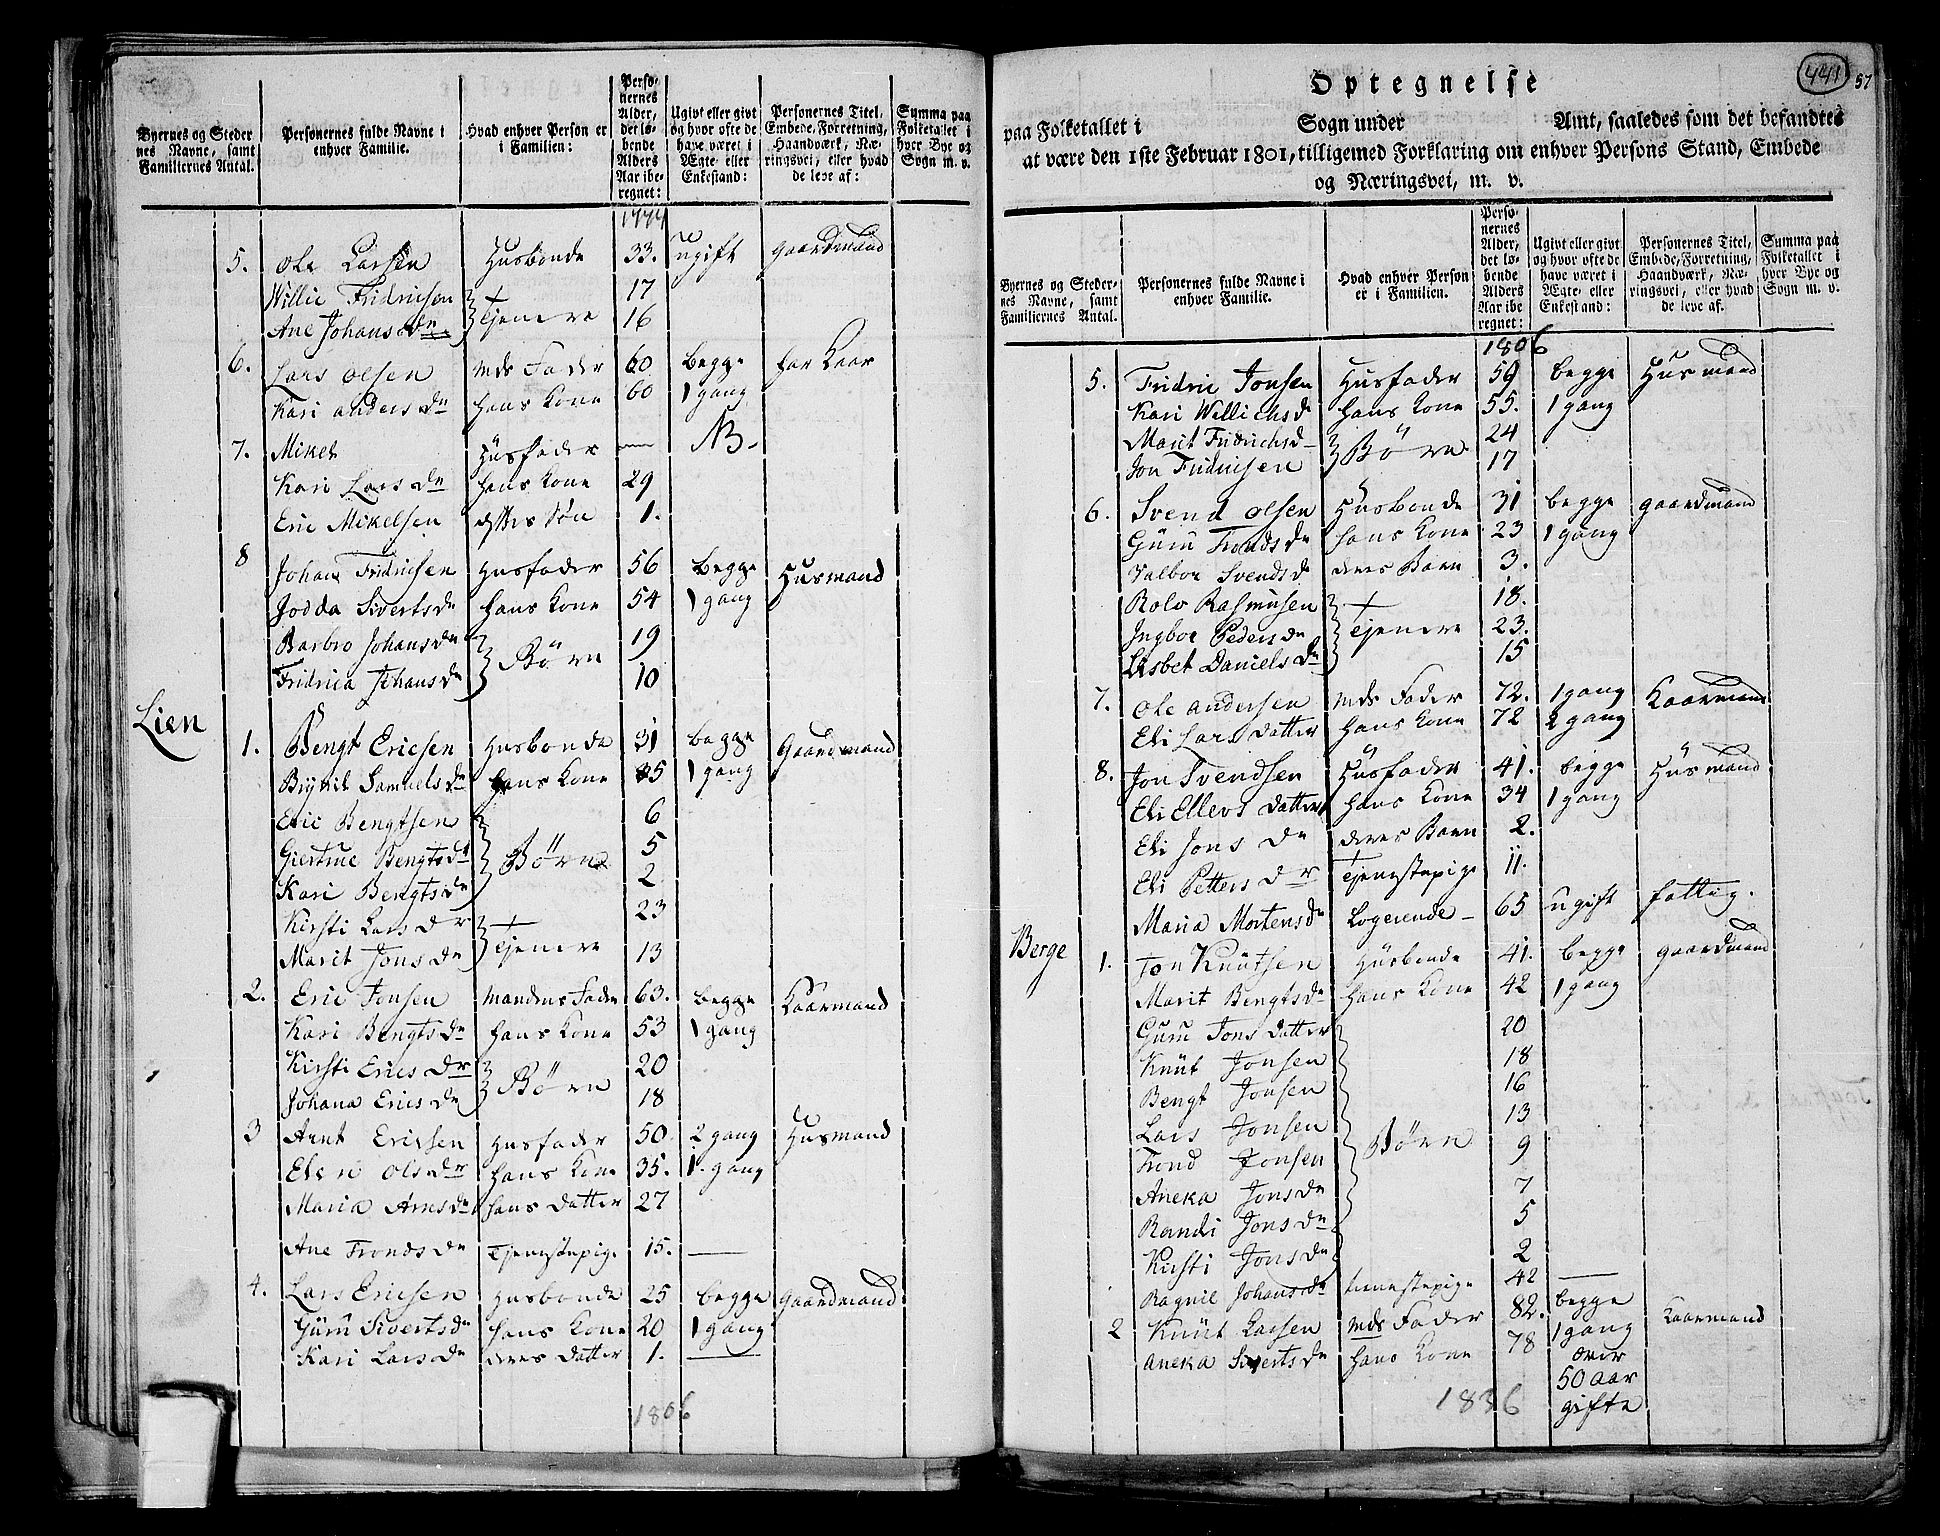 Byernes og Steder nes Navne, samt Familiernes Antal.
Personernes fulde Navne i enhver Familie.
Hvad enhver Person er i Familien:
Perso- nernes Alder, det lø- bende Alders Aar ibe- regnet:
Ugivt eller givt og hvor ofte de have været i Ægte- eller Enkestand:
Personernes Titel, Embede, Forretning, Haandværk, Næ- ringsvei, eller hvad de leve af:
Summa paa Folketallet i hver Bye og Sogn m. v.
1774
5. Ole Larsen Husbonde 33. ugift gaardmand
Willic Fridricsen 17
Ane Johansdr Tjenere 16
6. Lars Olsen mds Fader 60 begge har Kaar
Kari Andersdr hans Kone 60 1 gang
7. Mikel Husfader — NB-
Kari Larsdr hans Kone 29
Eric Mikelsen dettes Søn 1.
8 Johan Fridricsen Husfader 56 begge Husmand
Jodda Sivertsdr hans Kone 54 1 gang
Barbro Johansdr Børn 19
Fridrica Johansdr 10
Lien
1. Bengt Ericsen Husbonde 31 begge Gaardmand
Brynil Samuelsdr hans Kone 35 1 gang
Eric Bengtsen 6
Giertrue Bengtsdr Børn 5
Kari Bengtsdr 2
Kirsti Larsdr 23
Marit Jonsdr Tjenere 13
2. Eric Jonsen Mandens Fader 63. begge Kaarmand
Kari Bengtsdr hans Kone 53 1 gang
Kirsti Ericsdr Børn 20
Johana Ericsdr 18
3 Arnt Ericsen Husfader 50. 2 gang Husmand
Elen Olsdr hans Kone 35. 1. gang
Maria Arnsdr hans Datter 27
Ane Trondsdr Tjenestepige 15. —
4. Lars Ericsen Husbonde 25 begge Gaardmand
Guru Sivertsdr hans Kone 20 1 gang
Kari Larsdr deres Datter 1. —
1806
441
57
Optegnelse
paa Folketallet i Sogn under Amt, saaledes som det befandtes
at være den 1ste Februar 1801, tilligemed Forklaring om enhver Persons Stand, Embede
og Næringsvei, m. v.
Byernes og Steder- nes Navne, samt Familiernes Antal.
Personernes fulde Navne i enhver Familie.
Hvad enhver Person er i Familien.
Perso- nernes Alder, det lø- bende Alders Aar ibe regnet:
Ugivt eller givt og hvor ofte de have været i Ægte- eller Enkestand:
Personernes Titel, Embede, Forretning, Haandværk, Næ- ringsvei, eller hvad de leve af.
Summa paa Folketallet i hver Bye og Sogn m. v.
1806
5. Fridric Jonsen Husfader 59 begge Husmand
Kari Willichsdr hans Kone 55. 1 gang
Marit Fridrichsd Børn 24
Jon Fridricsen 17
6. Svend Olsen Husbonde 31 begge gaardmand
Guru Trondsdr hans Kone 23 1 gang
Valbor Svendsdr deres Barn 3.
Rolv Rasmusen 18.
Ingbor Pedersdr Tjenere 23.
Lisbet Danielsdr 15
7. Ole Andersen mds Fader 72. 1 gang Kaarmand
Eli Lars Datter hans Kone 72 2 gang
8. Jon Svendsen Husfader 41. begge Husmand
Eli Ellevs Datter hans Kone 34 1 gang
Eli Jonsdr deres Barn 2.
Eli Pettersdr Tjenestepige 11.
Maria Mortensdr Logerende- 65 ugift fattig.
Berge
1. Jon Knutsen Husbonde 41. begge gaardmand
Marit Bengtsdr hans Kone 42 1 gang
Guru Jons Datter 20
Knut Jonsen 18
Bengt Jonsen 16
Lars Jonsen 13
Trond Jonsen Børn 9
Aneka Jonsdr 7
Randi Jonsdr 5
Kirsti Jonsdr 2
Ragnil Johansdr tienestepige 42 —
2 Knut Larsen mds Fader 82. begge 1 gang Kaarmand
Aneka Sivertsdr hans Kone 78 over
50 aar
gifte
1836